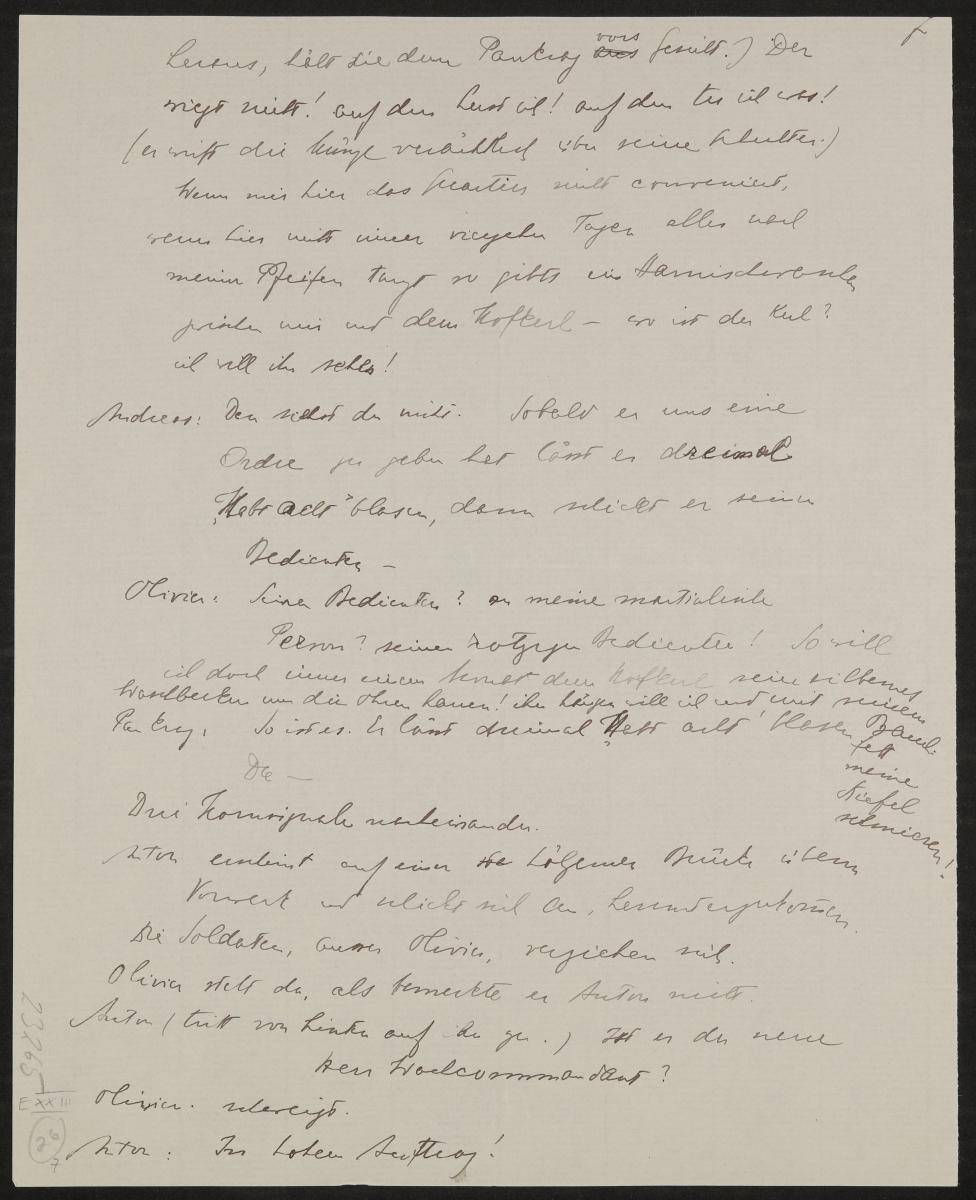 heraus, hält sie dem Pankraz vors Gesicht.) Der
wiegt nicht! auf den hust ich! auf den tu ich was!
(er wirft die Münze verächtlich über seine Schulter.)
Wenn mir hier das Quartier nicht conveniert,
wenn hier nicht inner vierzehn Tagen alles nach
meiner Pfeifen tanzt so gibts ein Harnischwaschen
zwischen mir und dem Hofkerl – wo ist der Kerl?
ich will ihn sehen!
Andreas: Den siehst du nicht. Sobald er uns eine
Ordre zu geben hat lässt er dreimal
„Habt acht“ blasen, dann schickt er seinen
Bedienten –
Olivier: Seinen Bedienten? an meine martialische
Person? seinen rotzigen Bedienten! So will
ich doch inner einem Monat dem Hofkerl sein silbernes
Waschbecken um die Ohren hauen! ihn hängen will ich und mit seinem
Bauch-
fett
meine
Stiefel
schmieren!
Pankraz: So ist es. Er lässt dreimal „Habt acht“ blasen
Da –
Drei Hornsignale nacheinander.
Anton erscheint auf einer hölzernen Brücke überm
Vorwerk und schickt sich an, herunterzukommen.
Die Soldaten, ausser Olivier, verziehen sich.
Olivier steht da, als bemerkte er Anton nicht.
Anton (tritt von hinten auf ihn zu.) Ist er der neue
Herr Wachcommandant?
Olivier. schweigt.
Anton: In hohem Auftrag!
E XXIII
26
7